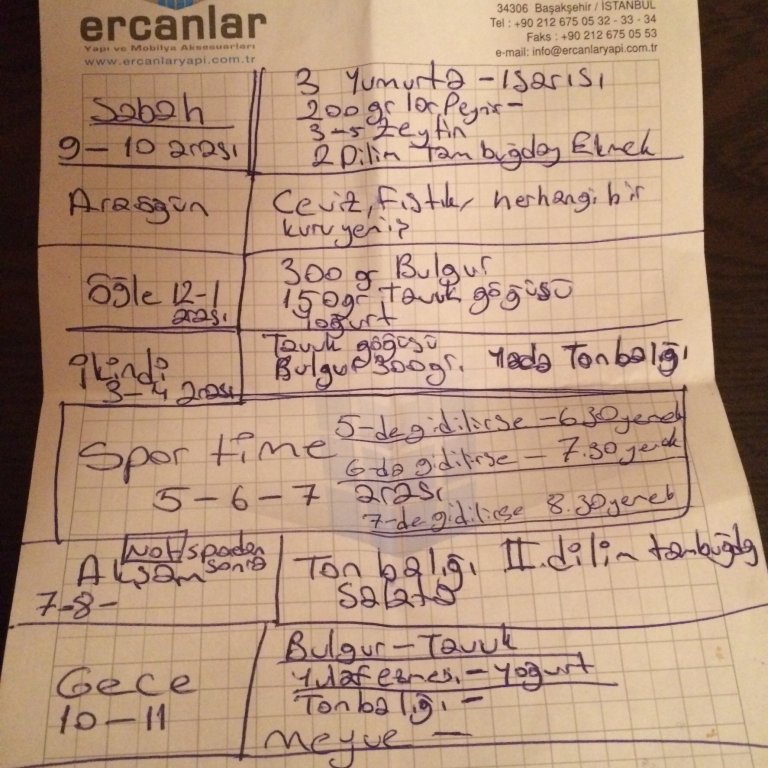 ercanlar
Yapı ve Mobilya Aksesuarları
www.ercanlaryapi.com.tr
34306 Başakşehir / İSTANBUL
Tel : +90 212 675 05 32 - 33 - 34
Faks : +90 212 675 05 53
e-mail: info@ercanlaryapi.com.tr
Sabah
9 - 10 arası
3 Yumurta - 1 sarısı
200 gr lor Peynir -
3-5 Zeytin
2 Dilim Tam buğday Ekmek
Araöğün
Ceviz, Fıstık, herhangi bir
kuru yemiş
Öğle 12-1
arası
300 gr Bulgur
150gr Tavuk göğüsü
Yoğurt
İkindi
3-4 arası
Tavuk göğüsü
Bulgur 300gr. Yada Ton balığı
Spor time
5 - 6 - 7
5-de gidilirse - 6.30 yemek
6-da gidilirse - 7.30 yemek
arası
7-de gidilirse 8.30 yemek
Not spodan
sonra
Akşam
7-8-
Ton balığı II. dilim tambuğday
Salata
Gece
10-11
Bulgur - Tavuk
Yulaf ezmesi - yoğurt
Ton balığı -
Meyve -